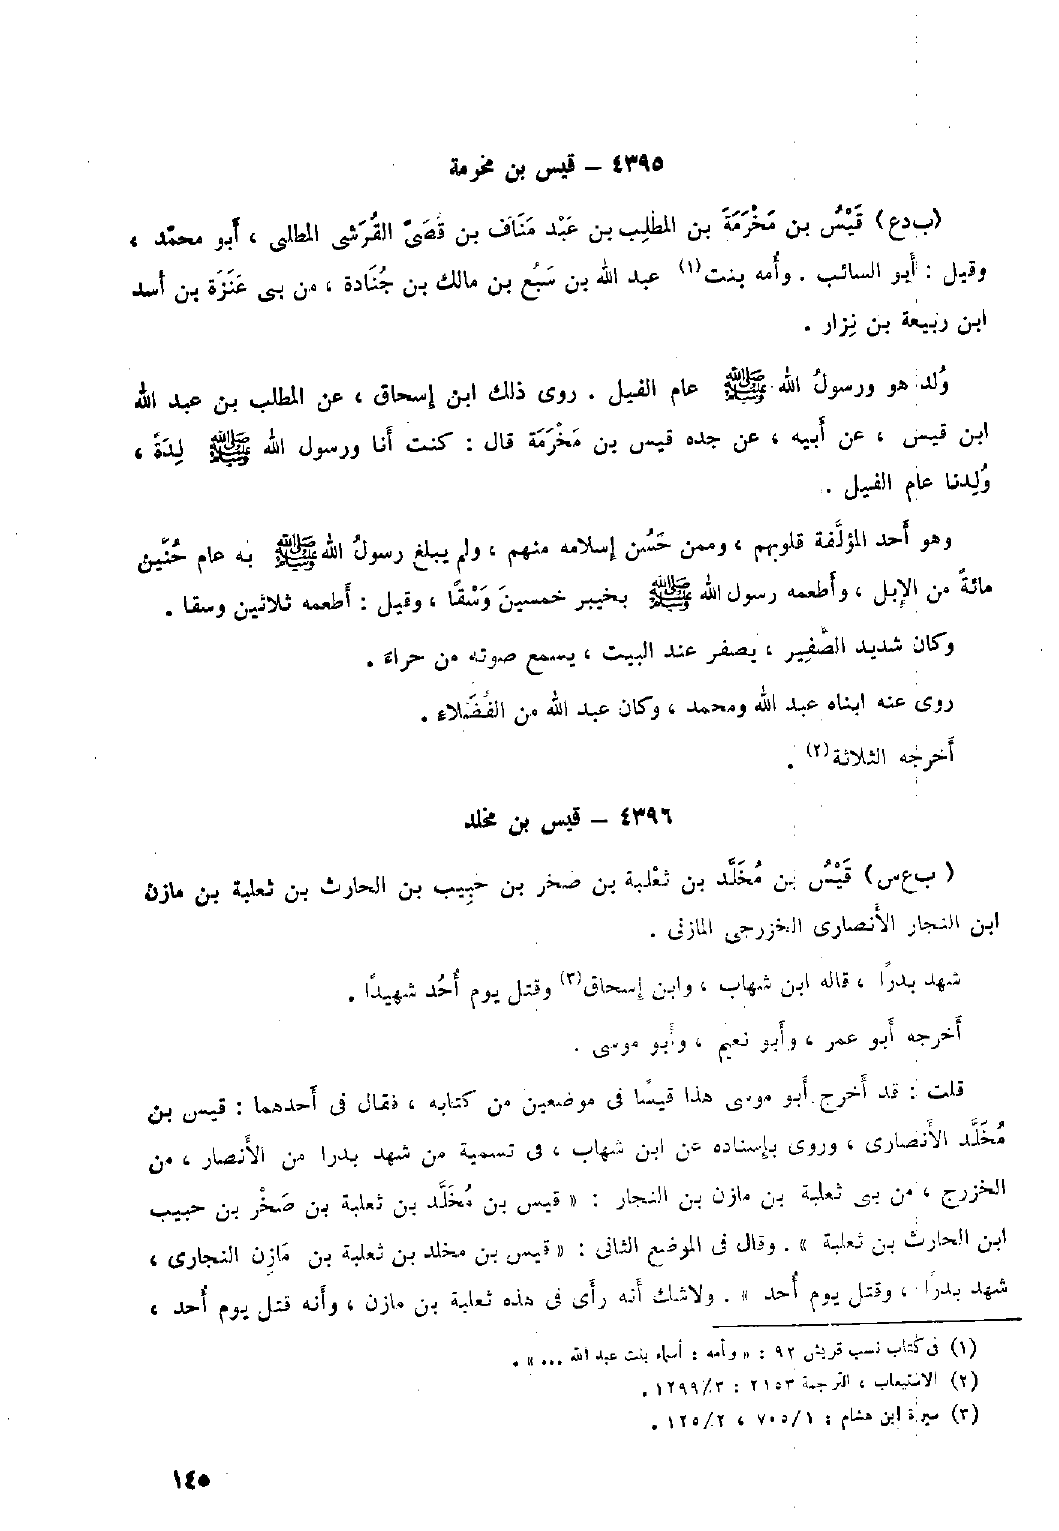 ٤٣٩٥ – قيس بن مخرمة
(ب د ع) قَيْسُ بن مَخْرَمَةَ بن المطَّلِب بن عَبْد مَنَاف بن قُصَىّ القُرَشى المطلبى ، أبو محمّد ،
وقيل : أبو السائب . وأُمه بنت(١) عبد الله بن سَبُع بن مالك بن جُنَادة ، من بنى عَنَزَة بن أسد
ابن ربيعة بن نِزار .
وُلد هو ورسولُ الله ﷺ عام الفيل . روى ذلك ابن إسحاق ، عن المطلب بن عبد الله
ابن قيس ، عن أبيه ، عن جده قيس بن مَخْرَمَة قال : كنت أنا ورسول الله ﷺ لِدَةً ،
وُلِدنا عام الفيل .
وهو أحد المؤلَّفة قلوبهم ، وممن حَسُن إسلامه منهم ، ولم يبلغ رسولُ الله ﷺ به عام حُنَين
مائةً من الإبل ، وأطعمه رسول الله ﷺ بخيبر خمسينَ وَسْقًا ، وقيل : أطعمه ثلاثين وسقا .
وكان شديد الصَّفِير ، يصفر عند البيت ، يسمع صوته من حراء .
روى عنه ابناه عبد الله ومحمد ، وكان عبد الله من الفُضَلاء .
أخرجه الثلاثة(٢) .
٤٣٩٦ – قيس بن مخلد
( ب ع س ) قَيْسُ بن مُخَلَّد بن ثَعْلبة بن صَخر بن حَبِيب بن الحارث بن ثعلبة بن مازن
ابن النجار الأنصارى الخزرجى المازنى .
شهد بدرًا ، قاله ابن شهاب ، وابن إسحاق(٣) وقتل يوم أُحُد شهيدًا .
أخرجه أبو عمر ، وأبو نعيم ، وأبو موسى .
قلت : قد أخرج أبو موسى هذا قيسًا فى موضعين من كتابه ، فقال فى أحدهما : قيس بن
مُخَلَّد الأنصارى ، وروى بإسناده عن ابن شهاب ، فى تسمية من شهد بدرا من الأنصار ، من
الخزرج ، من بنى ثعلبة بن مازن بن النجار : « قيس بن مُخَلَّد بن ثعلبة بن صَخْر بن حبيب
ابن الحارث بن ثعلبة » . وقال فى الموضع الثانى : « قيس بن مخلد بن ثعلبة بن مَازِن النجارى ،
شهد بدرًا ، وقتل يوم أُحد » . ولاشك أنه رأى فى هذه ثعلبة بن مازن ، وأنه قتل يوم أُحد ،
(١) فى كتاب نسب قريش ٩٢ : « وأمه : أسماء بنت عبد الله ... » .
(٢) الاستيعاب ، الترجمة ٢١٥٣ : ٣/ ١٢٩٩ .
(٣) سيرة ابن هشام : ١/ ٧٠٥ ، ٢/ ١٢٥ .
١٤٥